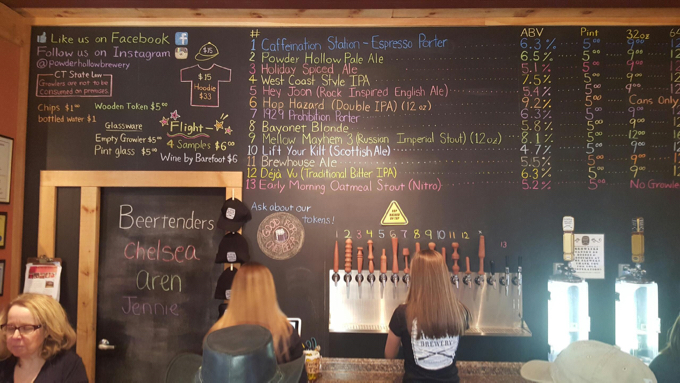 Like us on Facebook f
Follow us on Instagram
@powderhollowbrewery
$15
CT State Law
Growlers are not to be
consumed on premises
$15
Hoodie
$33
Chips $1.00
bottled water $1
Wooden Token $5.00
Glassware
Empty Growler $5.00
Pint glass $5.00
Flight
4 Samples $6.00
Wine by Barefoot $6
# ABV Pint 32oz 64
1 Caffeination Station - Espresso Porter 6.3% 5.00 9.00
2 Powder Hollow Pale Ale 6.5% 5.00 9.00
3 Holiday Spiced Ale 5.1% 5.00 9.00
4 West Coast Style IPA 7.5% 5.00 9.00
5 Hey Joon (Rock Inspired English Ale) 5.4% 5.00 9.00
6 Hop Hazard (Double IPA) (12oz) 9.2% 5.00 Cans Only
7 1929 Prohibition Porter 6.3% 5.00
8 Bayonet Blonde 5.8% 5.00
9 Mellow Mayhem 3 (Russian Imperial Stout) (12oz) 8.1% 5.00
10 Lift Your Kilt (Scottish Ale) 4.7% 5.00
11 Brewhouse Ale 5.5% 5.00
12 Déjà Vu (Traditional Bitter IPA) 6.3% 5.00
13 Early Morning Oatmeal Stout (Nitro) 5.2% 5.00 No Growle
Ask about our
tokens!
Beertenders
Chelsea
aren
Jennie
1 2 3 4 5 6 7 8 9 10 11 12 13
BREWERY